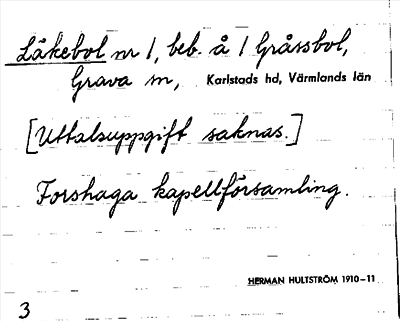 Läkebol nr 1, beb. å 1 Gråssbol,
Grava sn, Karlstads hd, Värmlands län
[Uttalsuppgift saknas.]
Forshaga kapellförsamling.
HERMAN HULTSTRÖM 1910-11
3